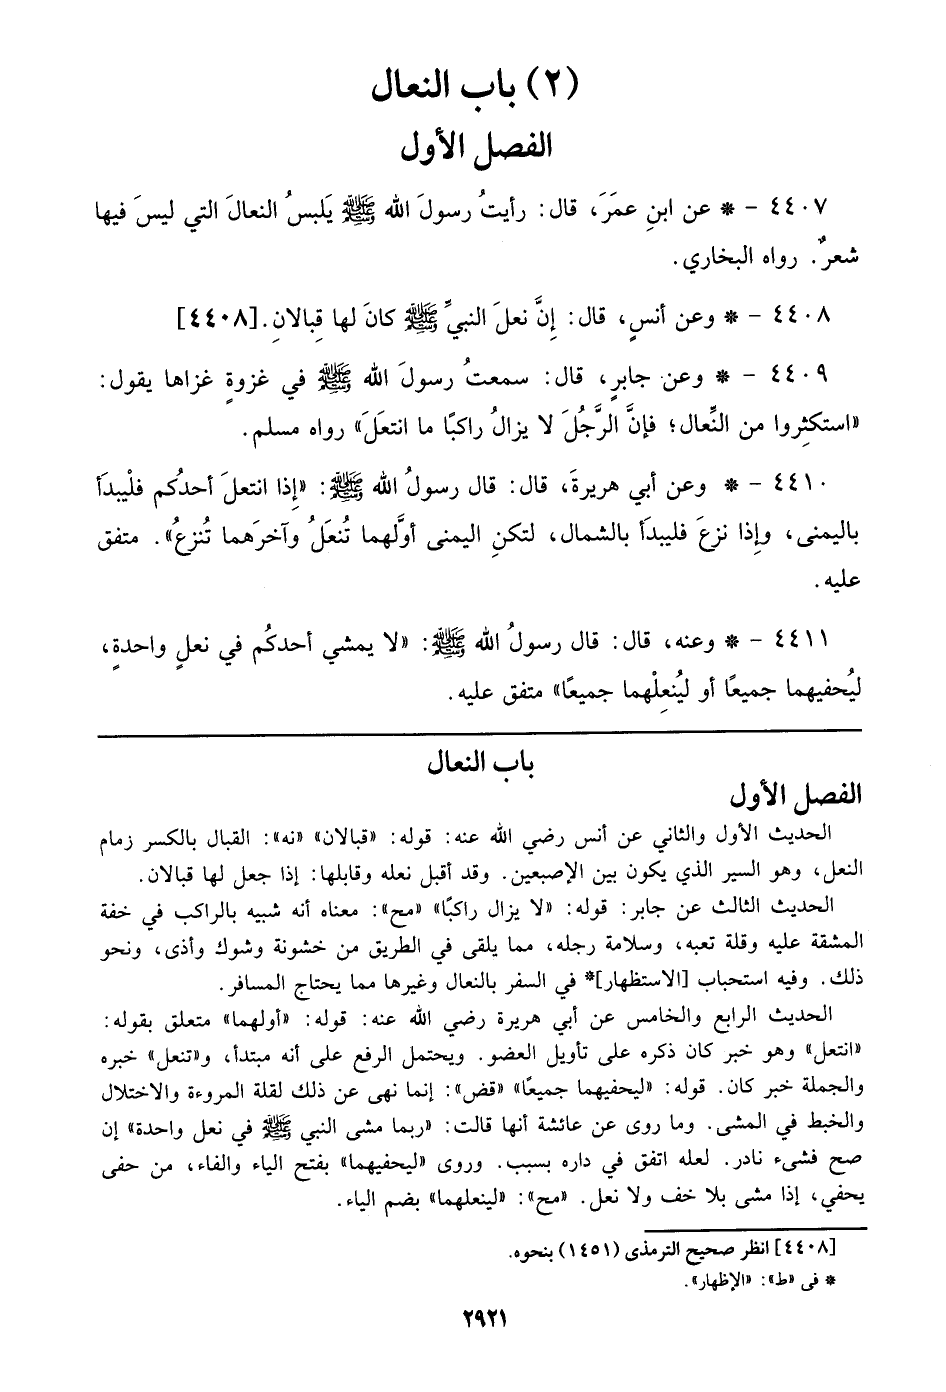 (٢) باب النعال
الفصل الأول
٤٤٠٧ – * عن ابنِ عمَرَ، قال: رأيتُ رسولَ الله ﷺ يَلبسُ النعالَ التي ليسَ فيها
شعرٌ. رواه البخاري.
٤٤٠٨ – * وعن أنسٍ، قال: إِنَّ نعلَ النبيِّ ﷺ كانَ لها قِبالانِ. [٤٤٠٨]
٤٤٠٩ – * وعن جابرٍ، قال: سمعتُ رسولَ الله ﷺ في غزوةٍ غزاها يقول:
«استكثِروا من النِّعال؛ فإنَّ الرَّجُلَ لا يزالُ راكبًا ما انتعَلَ» رواه مسلم.
٤٤١٠ – * وعن أبي هريرةَ، قال: قال رسولُ الله ﷺ: «إِذا انتعلَ أحدُكم فليْبدَأ
باليمنى، وإِذا نزعَ فليبدَأ بالشمال، لتكنِ اليمنى أوَّلهما تُنعَلُ وآخرَهما تُنزعُ». متفق
عليه.
٤٤١١ – * وعنه، قال: قال رسولُ الله ﷺ: «لا يمشي أحدكُم في نعلٍ واحدةٍ،
ليُحفيهما جميعًا أو ليُنعِلْهما جميعًا» متفق عليه.
باب النعال
الفصل الأول
الحديث الأول والثاني عن أنس رضي الله عنه: قوله: «قبالان» «نه»: القبال بالكسر زمام
النعل، وهو السير الذي يكون بين الإصبعين. وقد أقبل نعله وقابلها: إذا جعل لها قبالان.
الحديث الثالث عن جابر: قوله: «لا يزال راكبًا» «مح»: معناه أنه شبيه بالراكب في خفة
المشقة عليه وقلة تعبه، وسلامة رجله، مما يلقى في الطريق من خشونة وشوك وأذى، ونحو
ذلك. وفيه استحباب [الاستظهار]* في السفر بالنعال وغيرها مما يحتاج المسافر.
الحديث الرابع والخامس عن أبي هريرة رضي الله عنه: قوله: «أولهما» متعلق بقوله:
«انتعل» وهو خبر كان ذكره على تأويل العضو. ويحتمل الرفع على أنه مبتدأ، و«تنعل» خبره
والجملة خبر كان. قوله: «ليحفيهما جميعًا» «قض»: إنما نهى عن ذلك لقلة المروءة والاختلال
والخبط في المشى. وما روى عن عائشة أنها قالت: «ربما مشى النبي ﷺ في نعل واحدة» إن
صح فشىء نادر. لعله اتفق في داره بسبب. وروى «ليحفيهما» بفتح الياء والفاء، من حفى
يحفي، إذا مشى بلا خف ولا نعل. «مح»: «لينعلهما» بضم الياء.
[٤٤٠٨] انظر صحيح الترمذى (١٤٥١) بنحوه.
* فى «ط»: «الإظهار».
٢٩٢١